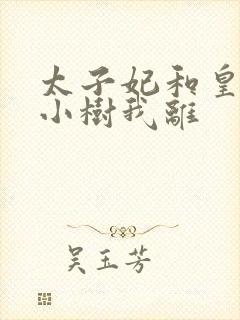 太子妃和皇
小樹我離
吴玉芳